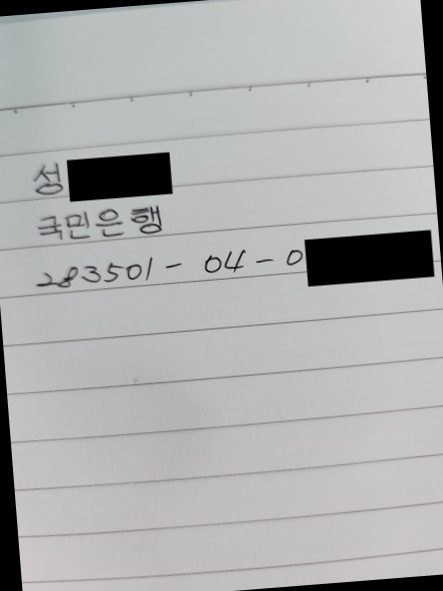 성
국민은행
283501 - 04 - 0